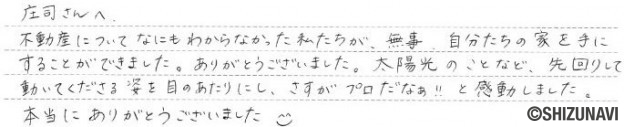 庄司さんへ.
不動産についてなにもわからなかった私たちが、無事、自分たちの家を手に
することができました。ありがとうございました。太陽光のことなど、先回りして
動いてくださる姿を目のあたりにし、さすがプロだなぁ!! と感動しました。
本当にありがとうございました
©SHIZUNAVI